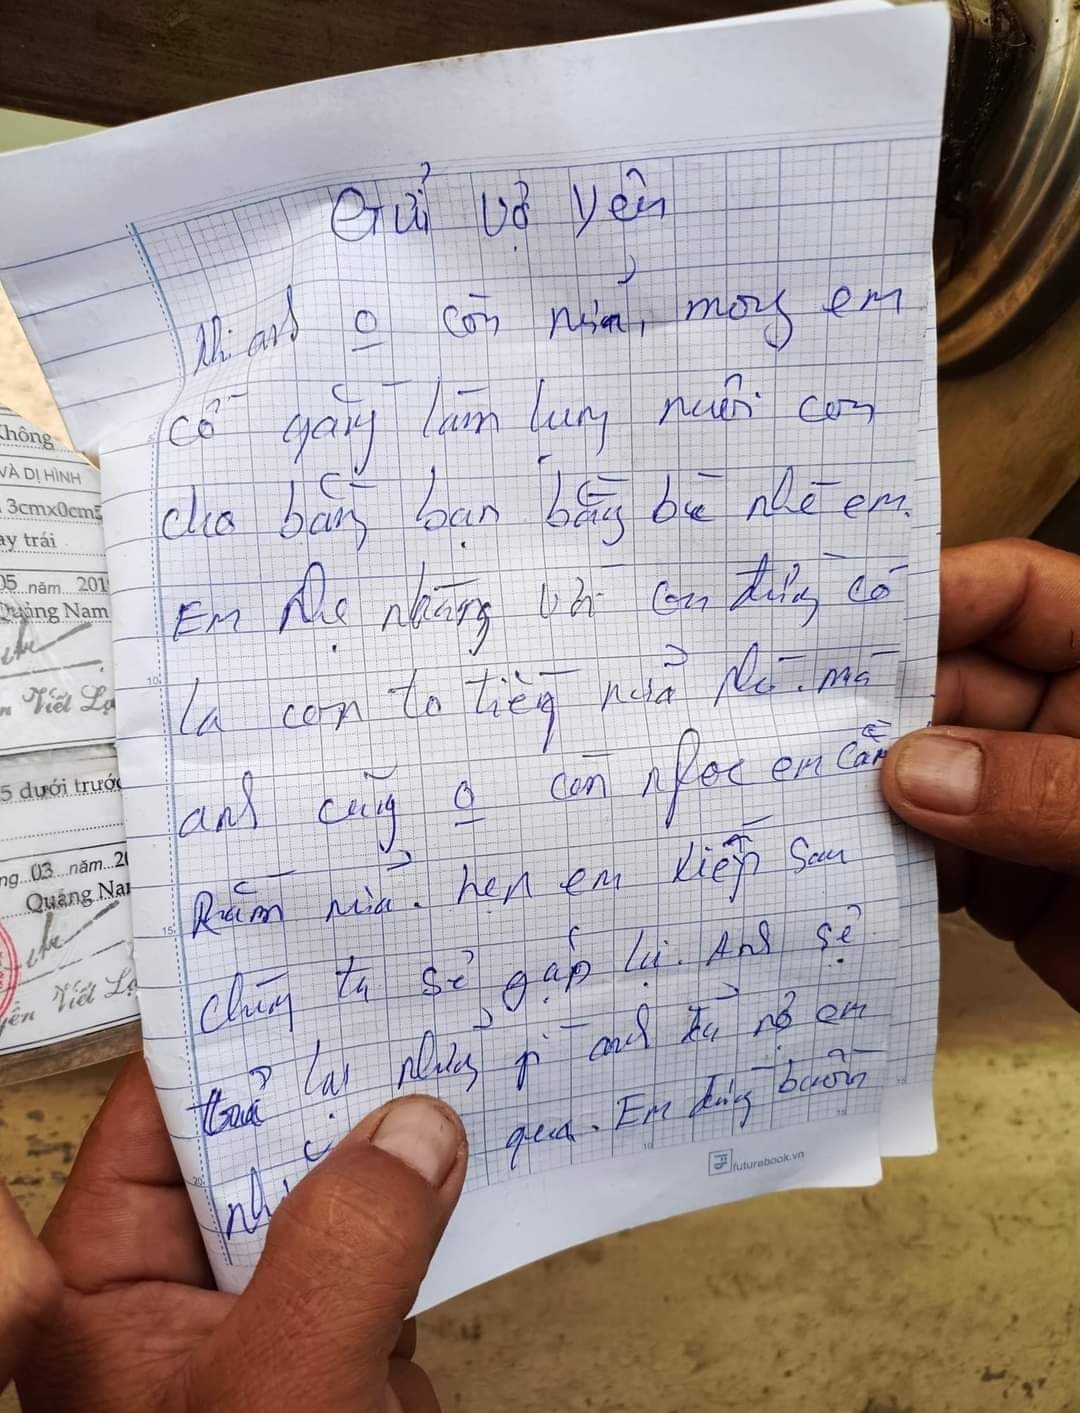 Gửi Vợ Yên
Khi anh o còn nửa, mong em
cố gắng làm lụng nuôi con
cho bằng bạn bằng bè nhé em.
Em nhẹ nhàng với con đừng có
la con to tiếng nửa nhé. mà
anh cũng o còn nhọc em cằn
Rằm nửa. hẹn em kiếp sau
chúng ta sẻ gặp lại. Anh sẻ
trả lại những gì anh đả nợ em
qua. Em đừng buồn
futurebook.vn
Không
VÀ DỊ HÌNH
3cmx0cm5
ay trái
05 năm 201
Quảng Nam
Viết
5 dưới trước
ng 03 năm 2
Quảng Na
Viết